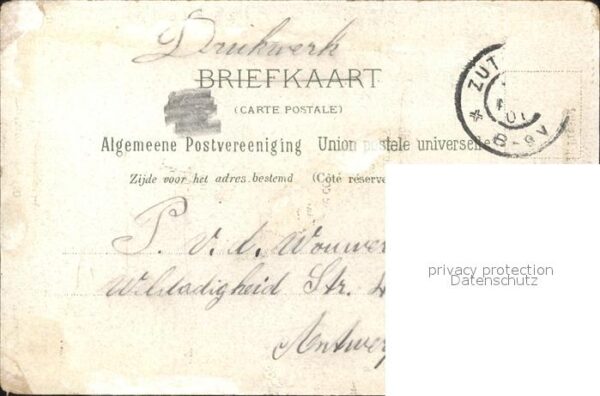 Drukwerk
BRIEFKAART
(CARTE POSTALE)
Algemeene Postvereeniging Union postele universelle
Zijde voor het adres bestemd (Côté réserv
ZUT
01
8-9V
P. v. d. Wouwer
Weldadigheid Str. 4
Antwerp
privacy protection
Datenschutz